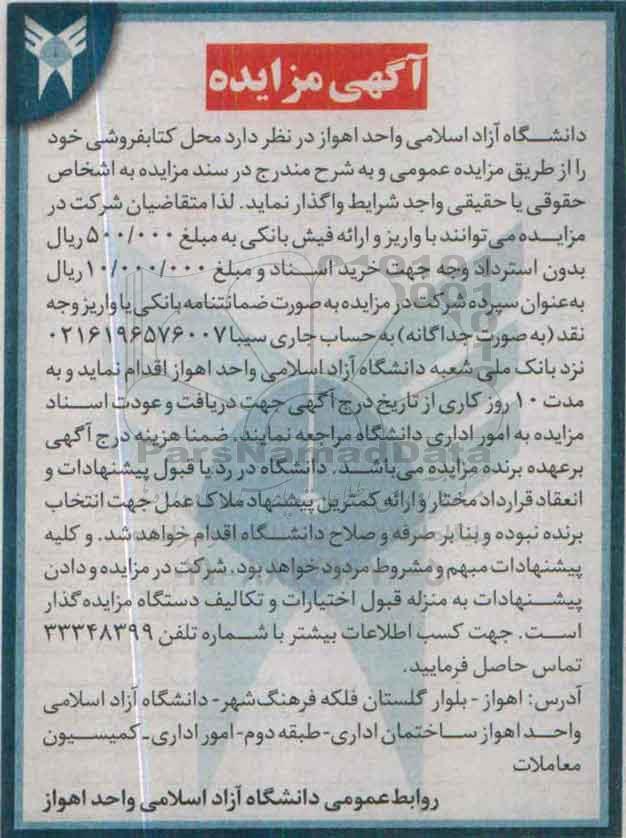 آگهی مزایده
دانشگاه آزاد اسلامی واحد اهواز در نظر دارد محل کتابفروشی خود
را از طریق مزایده عمومی و به شرح مندرج در سند مزایده به اشخاص
حقوقی یا حقیقی واجد شرایط واگذار نماید. لذا متقاضیان شرکت در
مزایده می‌توانند با واریز و ارائه فیش بانکی به مبلغ ۵۰۰/۰۰۰ ریال
بدون استرداد وجه جهت خرید اسناد و مبلغ ۱۰/۰۰۰/۰۰۰ ریال
به‌عنوان سپرده شرکت در مزایده به صورت ضمانتنامه بانکی یا واریز وجه
نقد (به صورت جداگانه) به حساب جاری سیبا ۰۲۱۶۱۹۶۵۷۶۰۰۷
نزد بانک ملی شعبه دانشگاه آزاد اسلامی واحد اهواز اقدام نماید و به
مدت ۱۰ روز کاری از تاریخ درج آگهی جهت دریافت و عودت اسناد
مزایده به امور اداری دانشگاه مراجعه نمایند. ضمنا هزینه درج آگهی
برعهده برنده مزایده می‌باشد. دانشگاه در رد یا قبول پیشنهادات و
انعقاد قرارداد مختار و ارائه کمترین پیشنهاد ملاک عمل جهت انتخاب
برنده نبوده و بنا بر صرفه و صلاح دانشگاه اقدام خواهد شد. و کلیه
پیشنهادات مبهم و مشروط مردود خواهد بود. شرکت در مزایده و دادن
پیشنهادات به منزله قبول اختیارات و تکالیف دستگاه مزایده‌گذار
است. جهت کسب اطلاعات بیشتر با شماره تلفن ۳۳۳۴۸۳۹۹
تماس حاصل فرمایید.
آدرس: اهواز - بلوار گلستان فلکه فرهنگ‌شهر - دانشگاه آزاد اسلامی
واحد اهواز ساختمان اداری - طبقه دوم - امور اداری - کمیسیون
معاملات
روابط عمومی دانشگاه آزاد اسلامی واحد اهواز
ParsNamadData